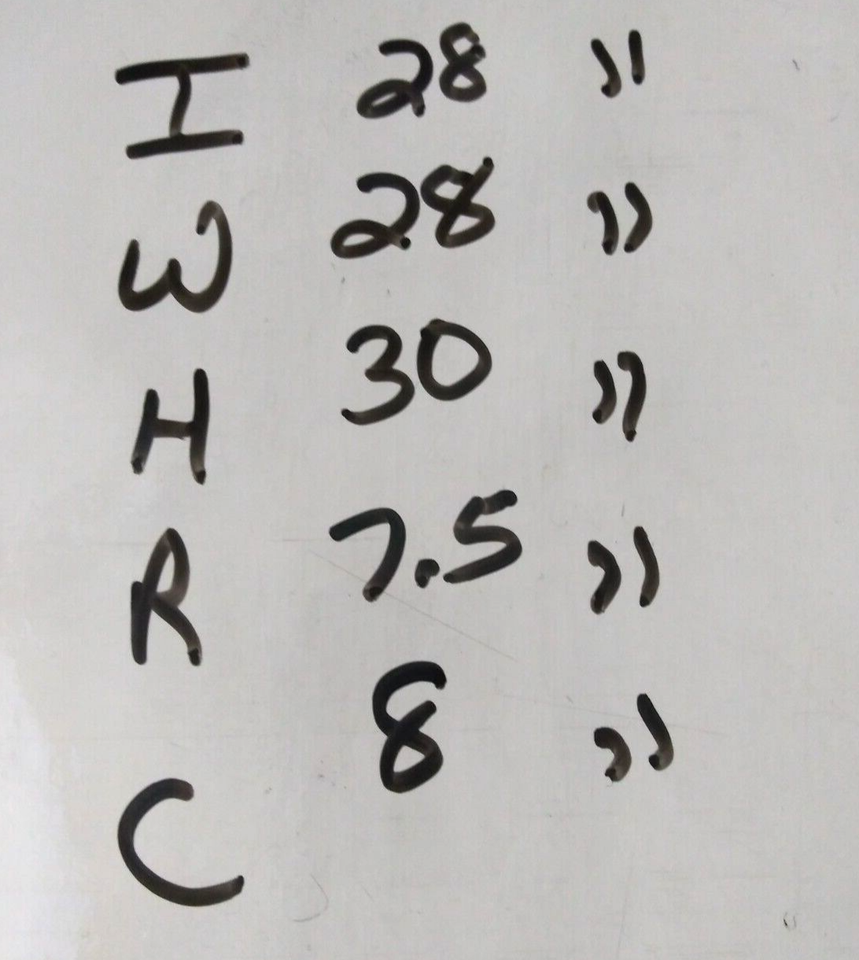 I 28 "
W 28 "
H 30 "
R 7.5 "
C 8 "